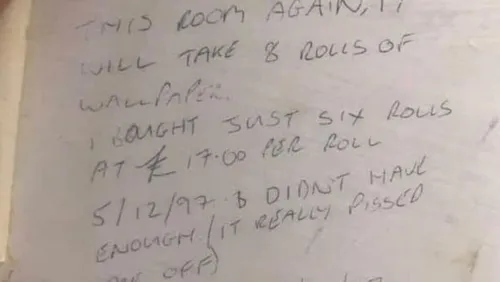 THIS ROOM AGAIN, IT
WILL TAKE 8 ROLLS OF
WALLPAPER.
I BOUGHT JUST SIX ROLLS
AT £17.00 PER ROLL
5/12/97 & DIDN'T HAVE
ENOUGH (IT REALLY PISSED
ME OFF)